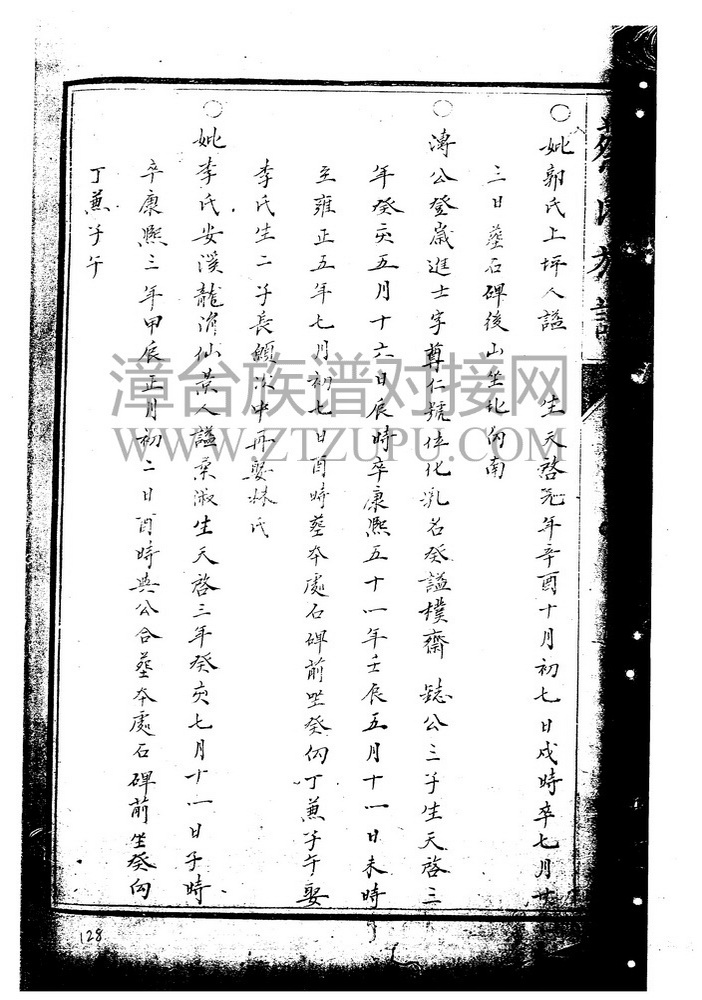 ○妣郭氏上坪人謚 生天啓元年辛酉十月初七日戌時卒七月廿
三日葬石碑後山坐北向南
○溥公登歲進士字尊仁號位化乳名癸謚樸齋 公三子生天啓三
年癸亥五月十六日辰時卒康熙五十一年壬辰五月十一日未時
至雍正五年七月初七日酉時葬本處石碑前坐癸向丁兼子午娶
李氏生二子長 次中再娶林氏
○妣李氏安溪龍涓仙景人謚柔淑生天啓三年癸亥七月十一日子時
卒康熙三年甲辰正月初二日酉時與公合葬本處石碑前坐癸向
丁兼子午
漳台族谱对接网
WWW.ZTZUPU.COM
128